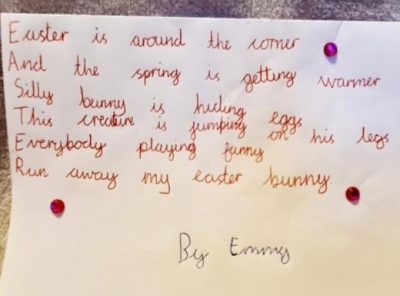 Easter is around the corner
And the spring is getting warmer
Silly bunny is hiding eggs
This creature is jumping on his legs
Everybody playing funny
Run away my easter bunny.
By Emmy